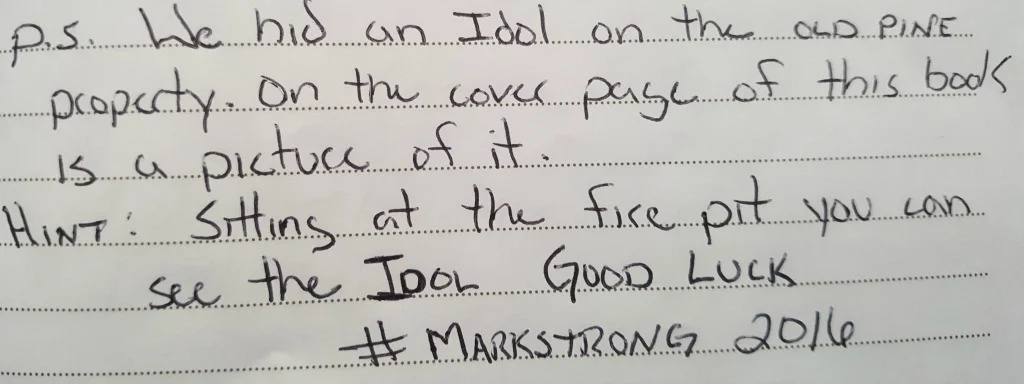 p.s. We hid an Idol on the OLD PINE
property. On the cover page of this book
is a picture of it.
HINT: Sitting at the fire pit you can
see the IDOL GOOD LUCK
# MARKSTRONG 2016